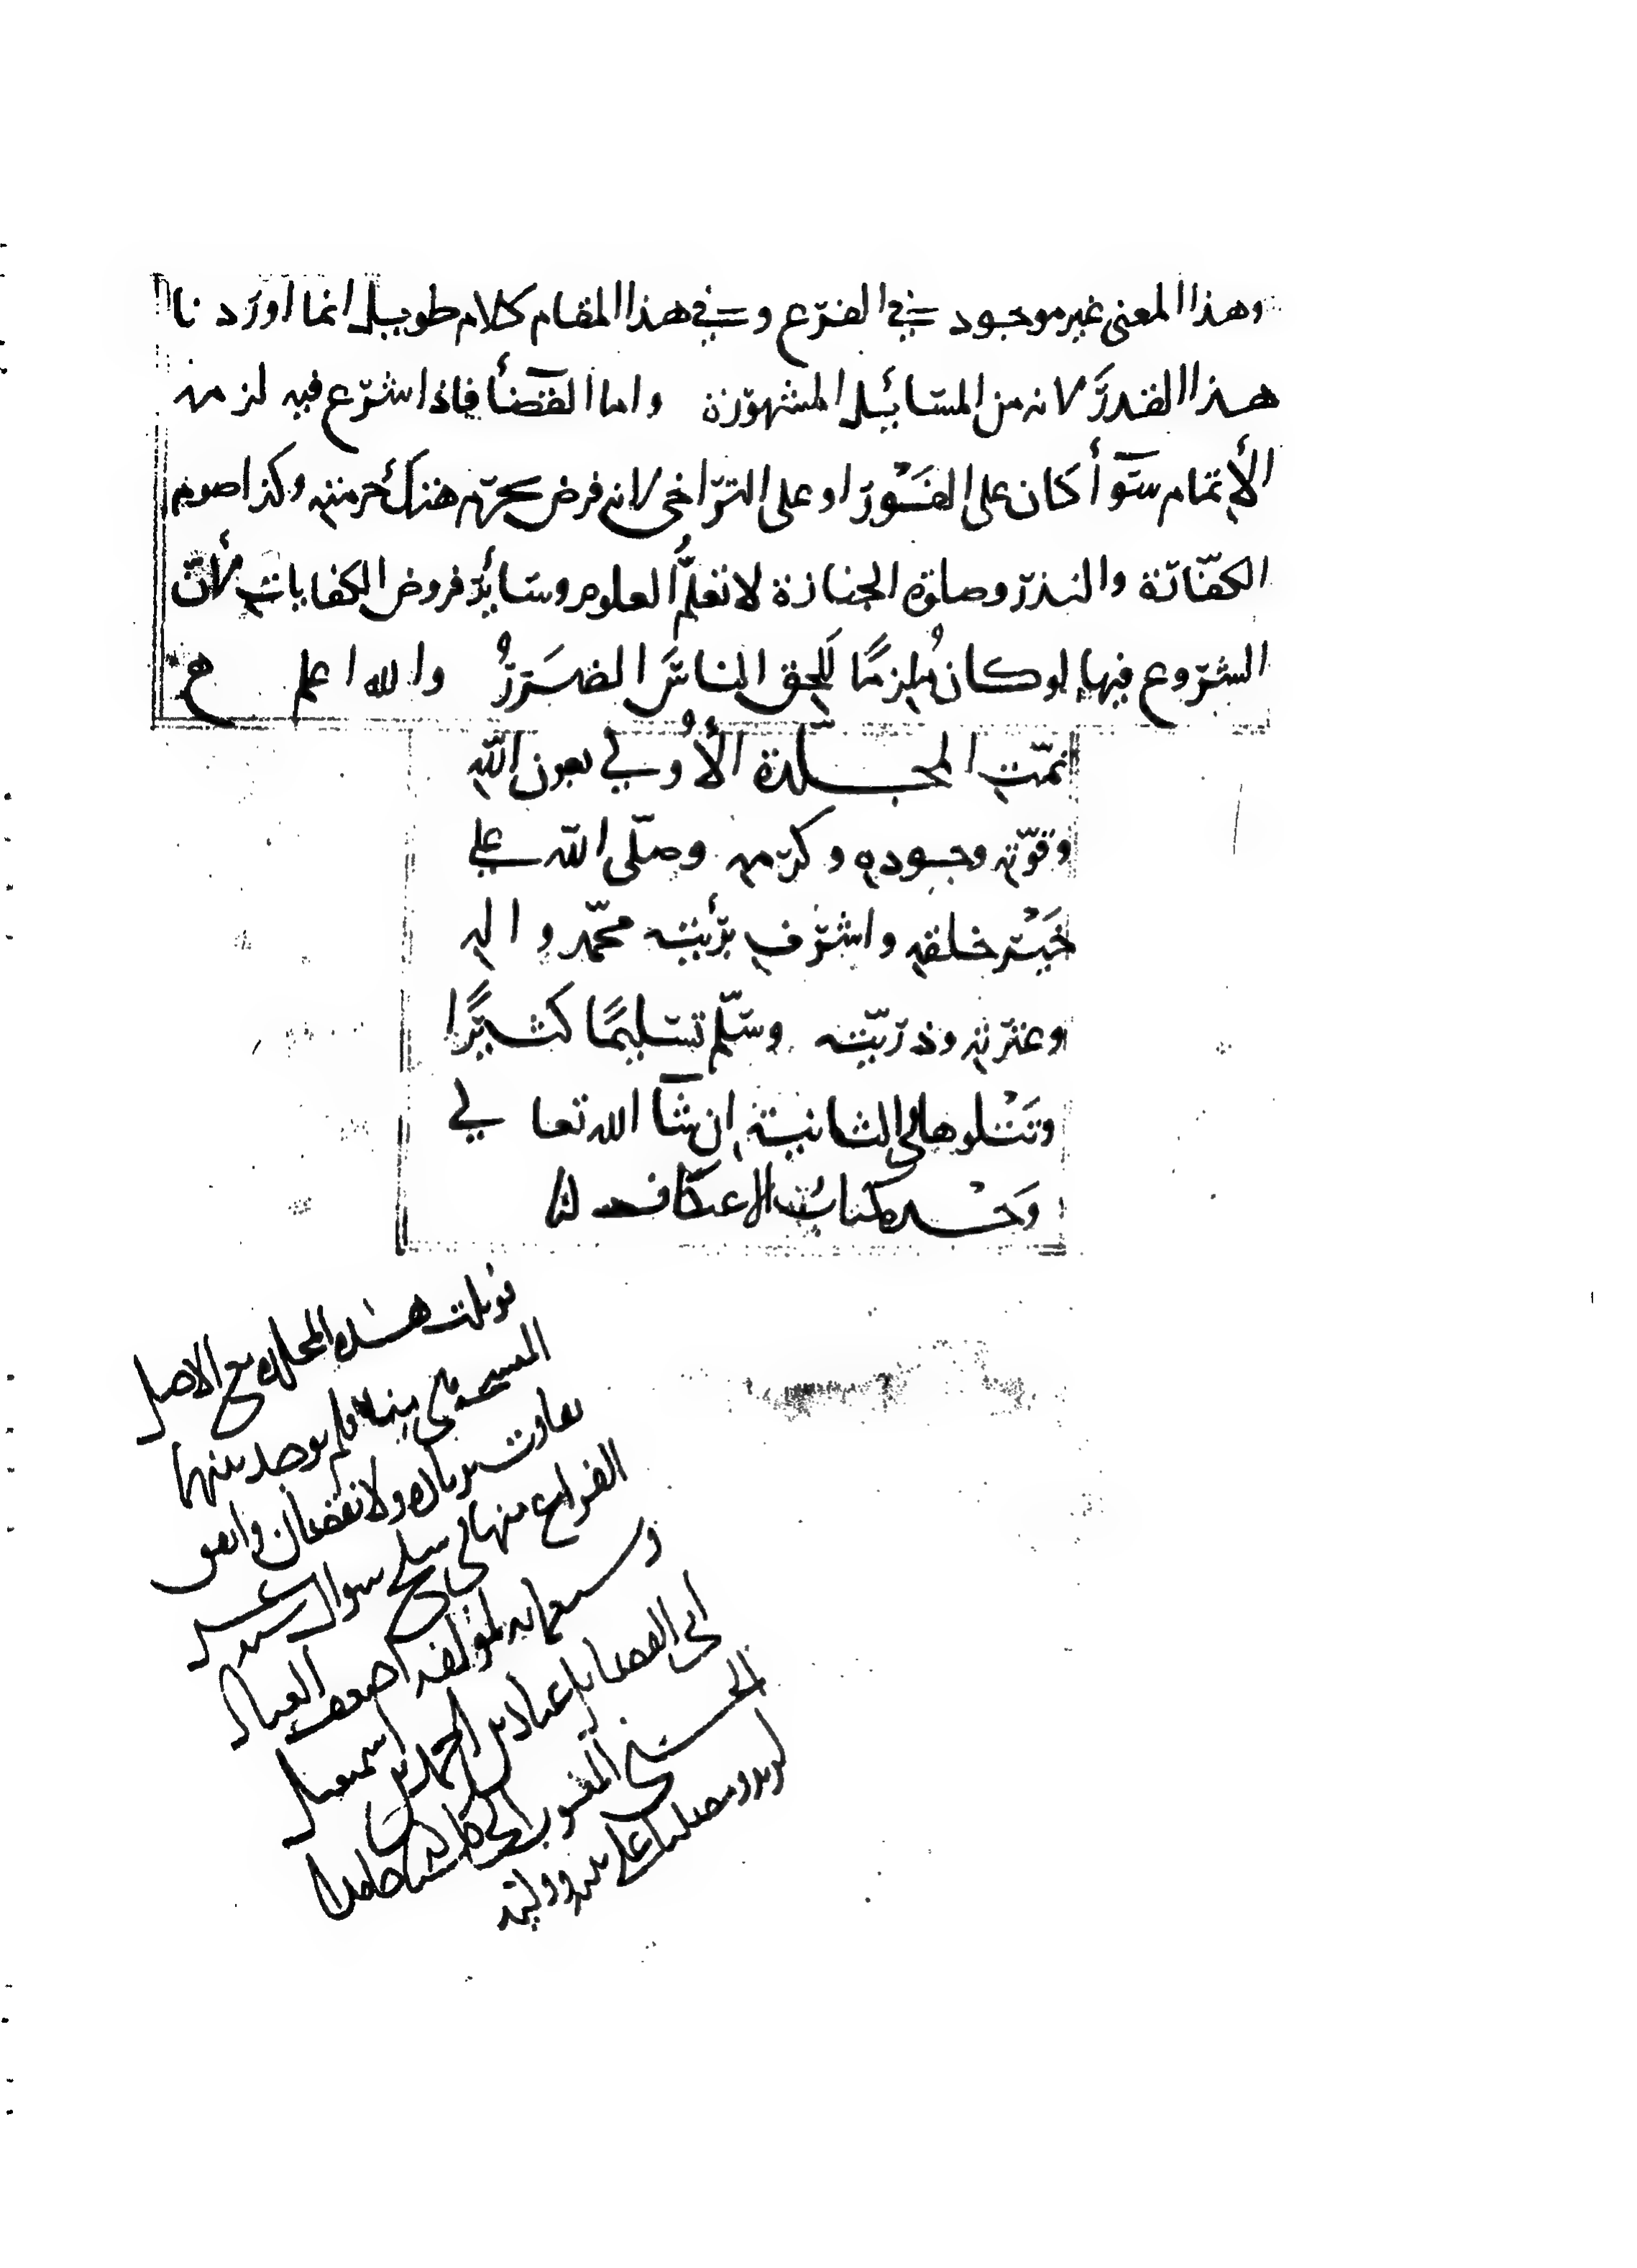 وهذا المعنى غير موجود في الفرع و في هذا المقام كلام طويل انما اوردنا
هذا القدر لانه من المسائل المشهورة واما القضأ فاذا شرع فيه لزمه
الأتمام سوآ أكان على الفور او على التراخي لانه فرض يحرم هتك حرمته وكذا صوم
الكفّارة والنذر وصلوة الجنازة لا تعلّم العلوم وسائر فروض الكفايات لأن
الشروع فيها لو كان مُلزمًا للحق الناسَ الضررُ والله اعلم
تمّت المجلدة الأولى بعون اللّه
وقوّته وجوده وكرمه وصلّى اللّه على
خَيْر خلقه واشرف بريته محمّد واله
وعترته وذرّيته وسلّم تسليمًا كثيرًا
وتَتْلوها في الثانية ان شآ الله تعالى
وَحْده كتاب الاعتكاف
قوبلت هذه المجلده مع الاصل
المنسخه هي منها فلم يوجد بينهما
تفاوت بزياده ولا نقصان واتفق
الفراغ منها في سلخ شوال سنه عشر
وسبعمايه لمؤلفه اضعف العباد
ابى الفضايل عباد بن احمد بن اسمعيل
الحسنى المنسوب الى كلستانه حامدا
لربه ومصليا على نبيه